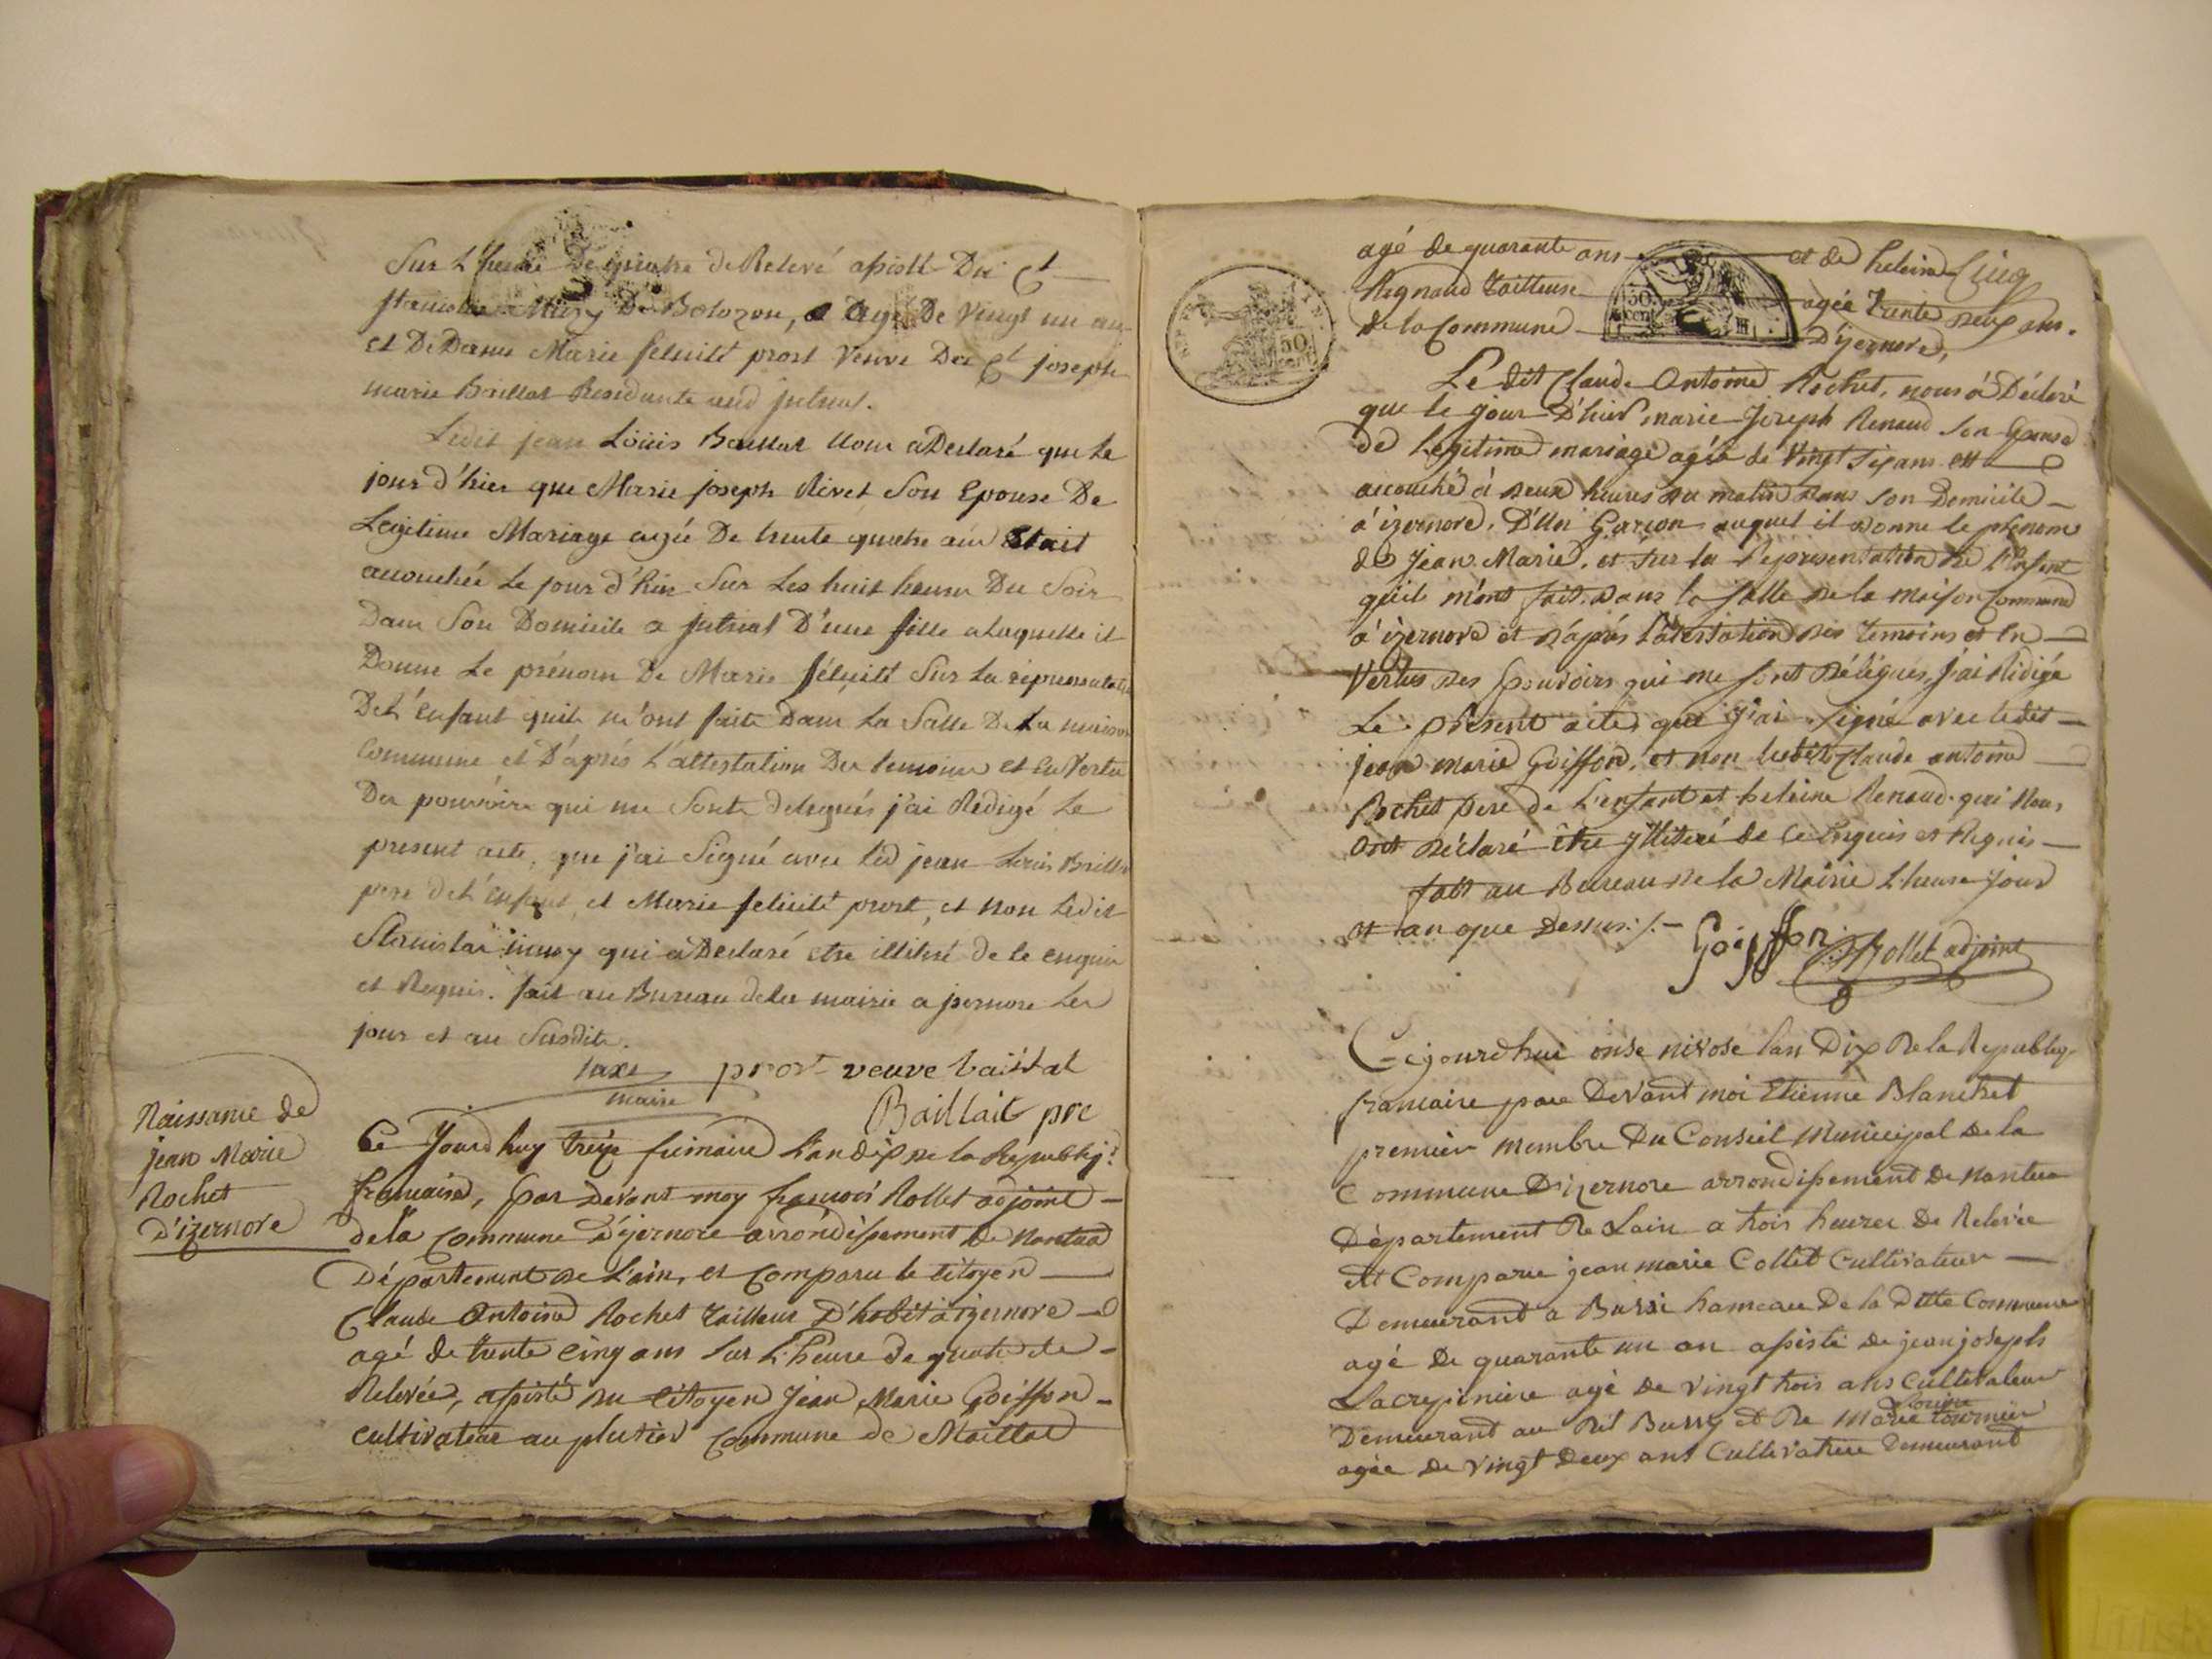 Sur L'heure De quatre de Relevé assisté Du Ct
Stanislas Mury De Bolozon, agé De Vingt un an
et De Dame Marie felicité prost Veuve Du Ct joseph
marie Baillat Residante aud
Ledit jean Louis Baillat Nous a Declaré que Le
jour d'hier que Marie joseph Rivet Son Epouse De
Legitime Mariage agée De trente quatre ans Etait
accouchée Le jour d'hier Sur Les huit heures Du Soir
Dans Son Domicile a D'une fille a Laquelle il
Donne Le prénom De Marie félicité Sur La représentation
De L'enfant quils m'ont faite Dans La Salle De La maison
Commune et D'aprés L'attestation Des temoins et En Vertu
Des pouvoirs qui me Sont delegués j'ai Redigé Le
present acte, que j'ai Signé avec led jean Louis Baillat
pere de L'enfant, et Marie felicité prost, et non Ledit
Stanislas mury qui a Declaré etre illitéré de ce enquis
et Requis. fait au Bureau de La mairie a jzernore Les
jour et an Susdits.
maire prost veuve baillat
Baillait pre
Naissance de
jean Marie
Rochet
D'izernore
Ce Jourd huy treize frimaire L'an dix de la Republiq.
francaise, par devant moy francois Rollet adjoint
de la Commune D'izernore arrondissement de Nantua
Département de L'ain, et Comparu le Citoyen
Claude Antoine Rochet tailleur D'habit à izernore
agé de trente cinq ans Sur L'heure de quatre de
Relevée, assisté du Citoyen Jean Marie Goiffon
cultivateur au Commune de Maillat
agé de quarante ans et de heleine
Regnaud tailleuse agée trente deux ans.
de la Commune D'izernore,
Le dit Claude Antoine Rochet, nous à Déclaré
que le jour D'hier marie Joseph Renaud Son Epouse
de legitime mariage agée de Vingt Six ans est
accouché à deux heures du matin dans Son Domicile
à izernore, D'Un Garçon auquel il donne le prénom
de Jean Marie, et Sur la Representation de L'Enfant
qu'ils m'ont fait dans la Salle de la maison Commune
à izernore et d'aprés L'atestation des temoins et En
Vertus des pouvoirs qui me Sont Délégués, j'ai Rédigée
Le présent acte, que j'ai Signé avec ledit
jean marie Goiffon, et non ledit Claude antoine
Rochet pere de L'enfant et heleine Renaud qui Nous
ont Déclaré être ylliteré de Ce Enquis et Requis
fait au Bureau de la Mairie L'heure jour
et an que Dessus ./. Goiffon Rollet adjoint
Cejourdhui onse nivose lan Dix De la Republiq.
francaise par Devant moi Etienne Blanchet
premier membre Du Conseil Municipal de la
Commune D'izernore arrondissement De Nantua
Département De Lain a trois heures De Relevée
est Comparu jean marie Collet Cultivateur
Demeurant a Bussi hameau De la Ditte Commune
agé De quarante un an assisté de jean joseph
Lacrepiniere agé De Vingt trois ans Cultivateur
Demeurant au Dit Bussy et De Marie Louise tournier
agée De Vingt Deux ans Cultivatrice Demeurant